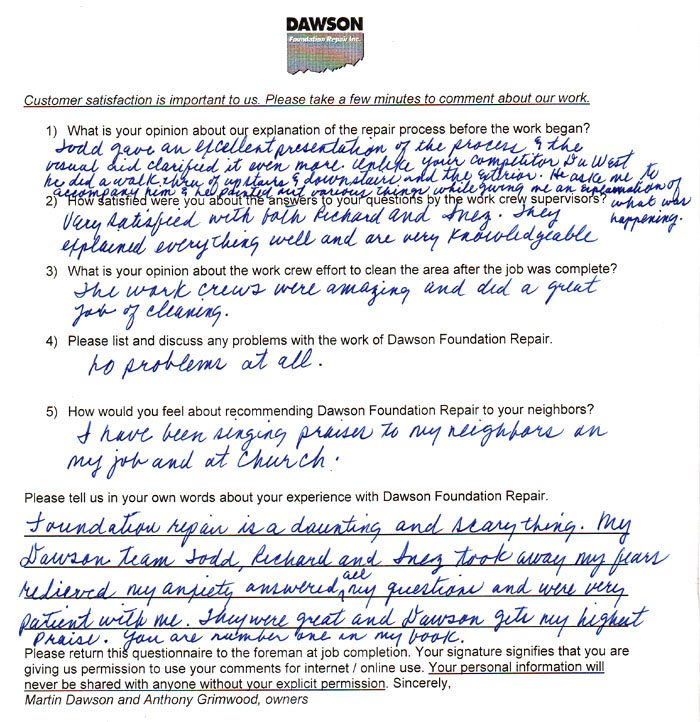 DAWSON
Foundation Repair Inc.
Customer satisfaction is important to us. Please take a few minutes to comment about our work.
1) What is your opinion about our explanation of the repair process before the work began?
Todd gave an excellent presentation of the process & the
visual aid clarified it even more. Unlike your competitor Du West
he did a walk thru of upstairs & downstairs and the exterior. He aske me to
accompany him & he pointed out various things while giving me an explanation of
what was
happening.
2) How satisfied were you about the answers to your questions by the work crew supervisors?
Very satisfied with both Richard and Inez. They
explained everything well and are very knowledgeable
3) What is your opinion about the work crew effort to clean the area after the job was complete?
The work crews were amazing and did a great
job of cleaning.
4) Please list and discuss any problems with the work of Dawson Foundation Repair.
no problems at all.
5) How would you feel about recommending Dawson Foundation Repair to your neighbors?
I have been singing praises to my neighbors on
my job and at Church.
Please tell us in your own words about your experience with Dawson Foundation Repair.
Foundation repair is a daunting and scary thing. My
Dawson team Todd, Richard and Inez took away my fears
redieved my anxiety answered all my questions and were very
patient with me. They were great and Dawson gets my highest
praise. You are number one in my book.
Please return this questionnaire to the foreman at job completion. Your signature signifies that you are
giving us permission to use your comments for internet / online use. Your personal information will
never be shared with anyone without your explicit permission. Sincerely,
Martin Dawson and Anthony Grimwood, owners